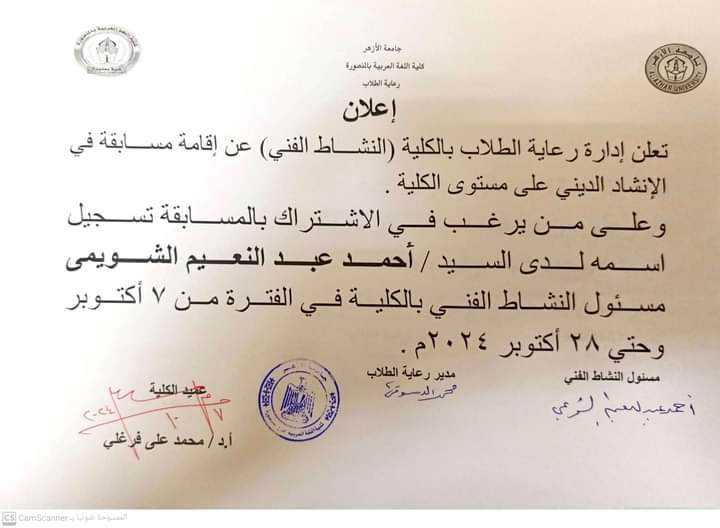 جامعة الأزهر
كلية اللغة العربية بالمنصورة
رعاية الطلاب
AL-AZHAR UNIVERSITY
إعلان
تعلن إدارة رعاية الطلاب بالكلية (النشاط الفني) عن إقامة مسابقة في
الإنشاد الديني على مستوى الكلية .
وعلى من يرغب في الاشتراك بالمسابقة تسجيل
اسمه لدى السيد / أحمد عبد النعيم الشويمى
مسئول النشاط الفني بالكلية في الفترة من ٧ أكتوبر
وحتي ٢٨ أكتوبر ٢٠٢٤م .
مسئول النشاط الفني
مدير رعاية الطلاب
عميد الكلية
٧/١٠/٢٠٢٤
أ.د/ محمد على فرغلي
CS CamScanner الممسوحة ضوئيا بـ